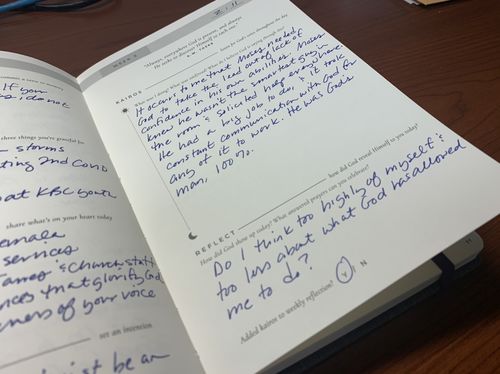 If you
three things you're grateful for
storms
ting 2nd Covid
at KBC youth
share what's on your heart today
services
church staff
nces that glorify God
ness of your voice
set an intention
be an
2.11
WEEK 6
"Always, everywhere God is present, and always
He seeks to discover Himself to each one."
A.W. TOZER
KAIROS
listen for God's voice throughout the day
It occurs to me that Moses needed
God to take the lead out of lack of
confidence in his own abilities. Moses
knew he wasn't the smartest guy in
the room & solicited help everywhere.
He had a big job to do, & it took
constant communication with God for
any of it to work. He was God's
man, 100%.
REFLECT
how did God reveal Himself to you today?
How did God show up today? What answered prayers can you celebrate?
Do I think too highly of myself &
too less about what God has allowed
me to do?
Added kairos to weekly reflection? Y / N